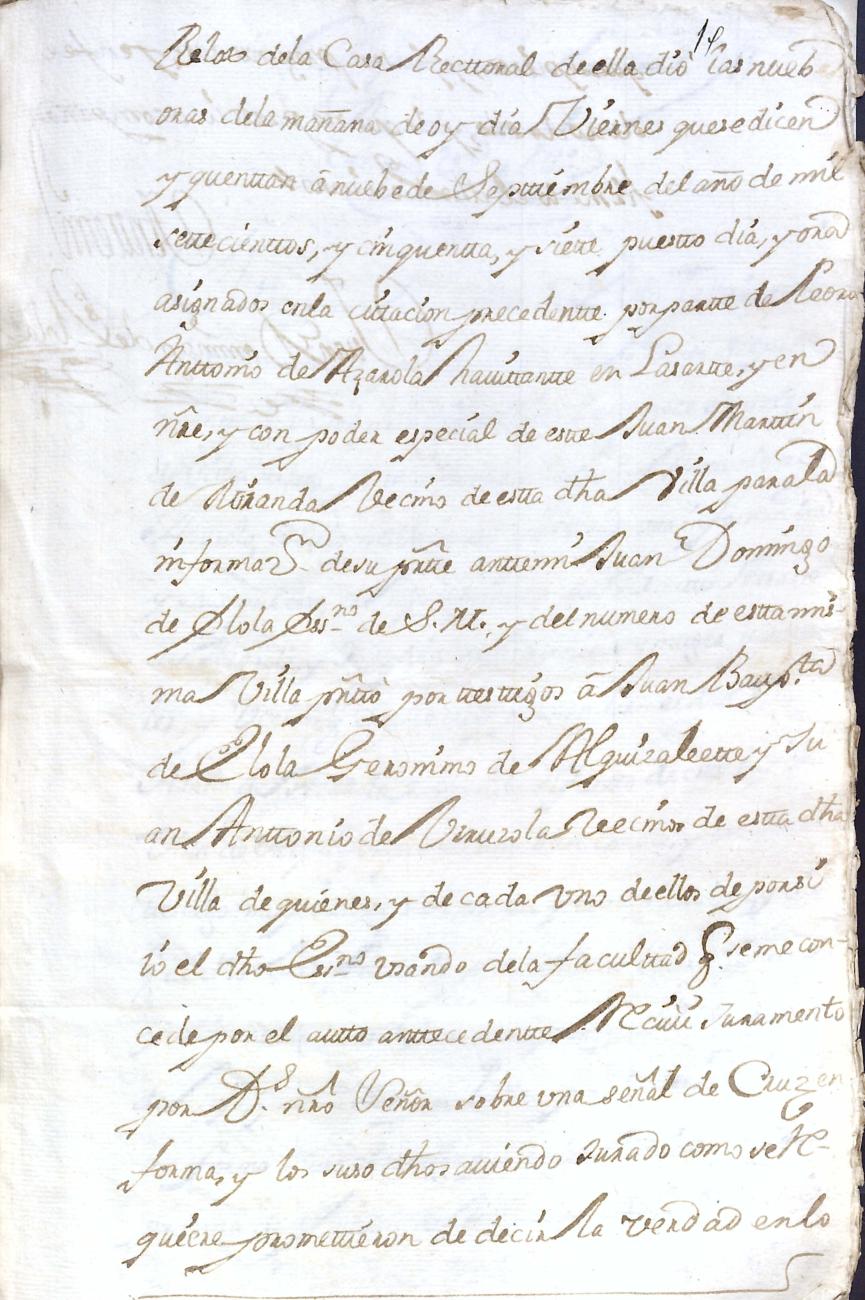 Relox dela Casa Recttoral de ella dio las nueb
oras dela mañana de oy dia Viernes que se dicen
y quenttan â nuebe de Septtiembre del año de mil
settecienttos, y cinquentta, y siette puestto dia, y ora
asignados en la cittacion precedentte por partte de Pedro
Anttonio de Azarola havittantte en Lasartte, y en
nr̃e, y con poder especial de estte Juan Marttin
de Miranda Vecino de estta dh̃a Villa para la
informaz.on de su prtte antte mi Juan Domingo
de Elola Ess.no de S. M., y del numero de estta mis-
ma Villa prnttò por ttesttigos â Juan Baup.ta
de Elola Geronimo de Alquizaleette y Ju
an Anttonio de Vzuzola Vecinos de estta dh̃a
Villa de quienes, y de cada vno de ellos de por si
io el dho Ess.no vsando dela faculttad q.e se me con-
cede por el autto anttecedentte Reciui Juramento
por D.s nrõ Señor sobre vna señal de Cruz en
forma, y los suso dhos auiendo Jurado como se Re-
quiere promettieron de decir la verdad en lo